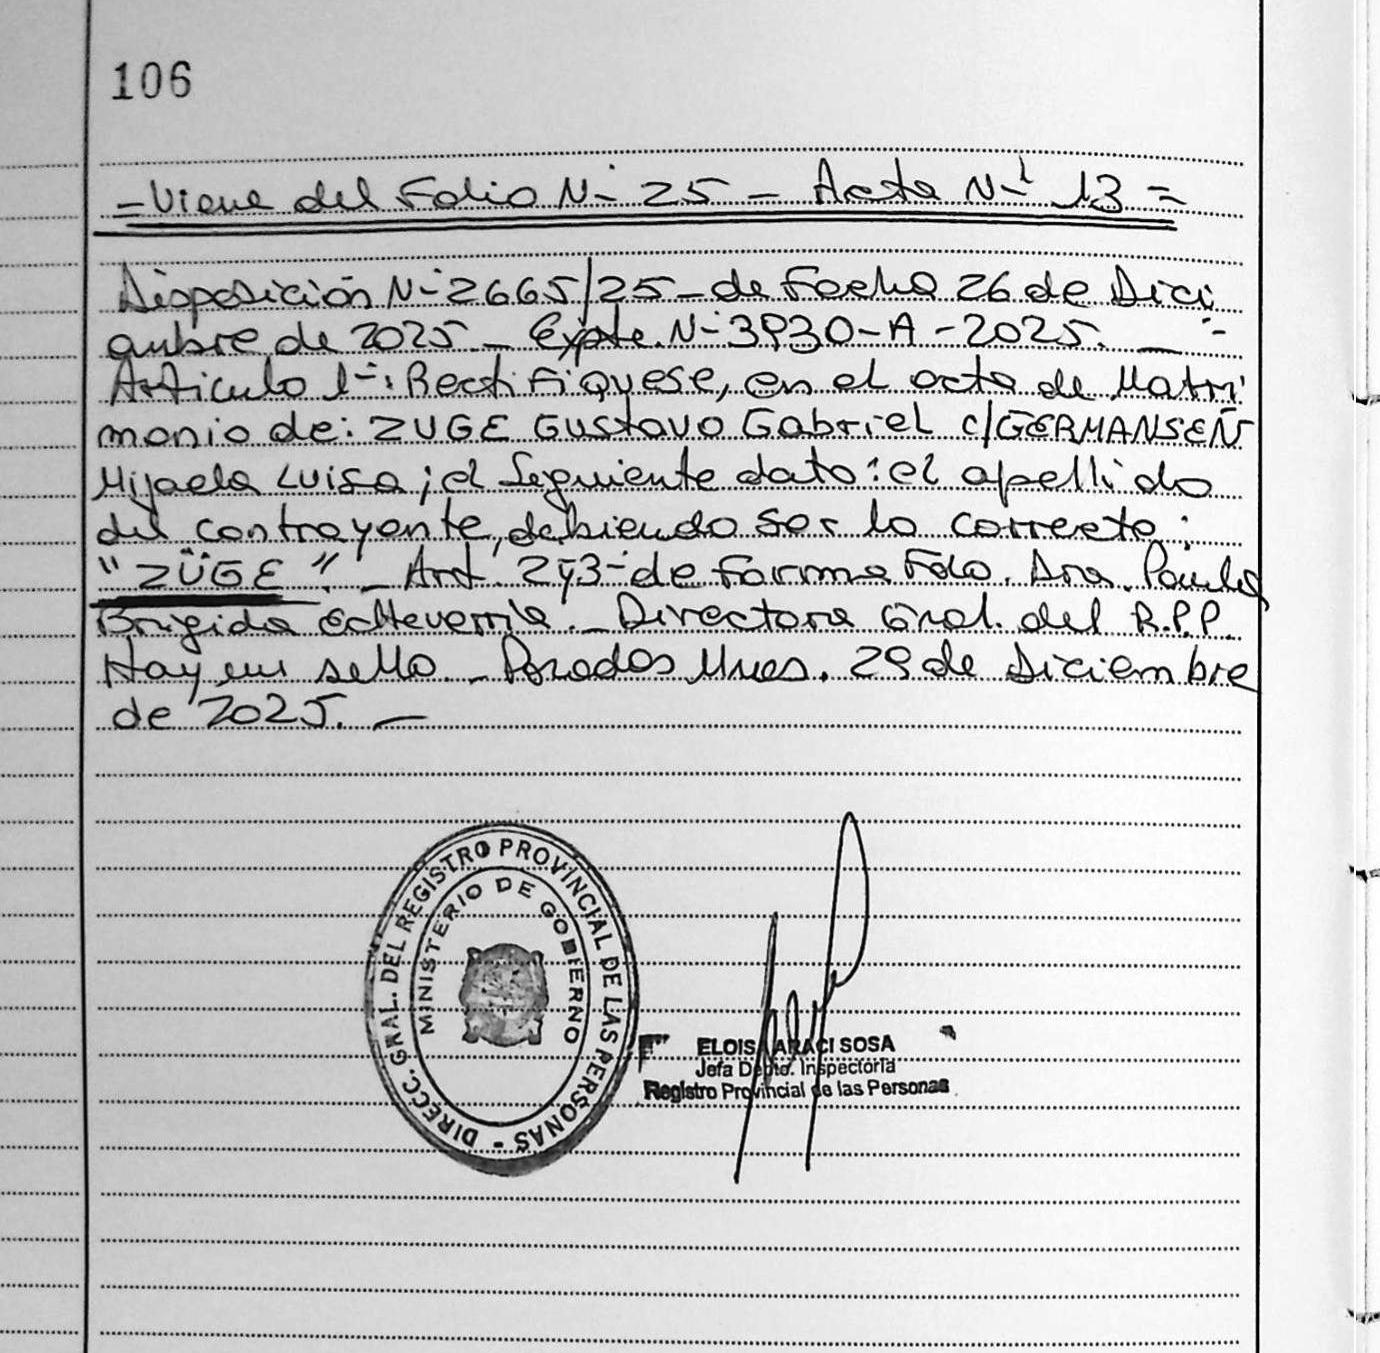 106
=Viene del Folio N- 25 - Acta N-¹ 13 =
Disposición N- 2665/25 - de Fecha 26 de Dici
embre de 2025 - Expte. N- 3930-A-2025. -
Articulo 1-: Rectifiquese, en el acta de Matri
monio de: ZUGE Gustavo Gabriel c/GERMANSEN
Mijaela Luisa; el Seguiente dato: el apellido
del contrayente, debiendo ser lo correcto:
"ZÜGE" - Art. 2y3- de forma Fdo. Dra.
Brigida Echeverria. - Directora Gral. del R.P.P.
Hay un sello - Posadas Mnes. 29 de Diciembre
de 2025. -
DIRECC. GRAL. DEL REGISTRO PROVINCIAL DE LAS PERSONAS -
MINISTERIO DE GOBIERNO
ELOISA ARACI SOSA
Jefa Depto. Inspectoria
Registro Provincial de las Personas